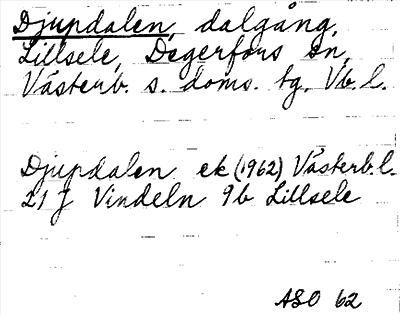 Djupdalen, dalgång,
Lillsele, Degerfors sn,
Västerb. s. doms. tg, Vb. l.
Djupdalen ek (1962) Västerb. l.
21 J Vindeln 9b Lillsele
ASO 62